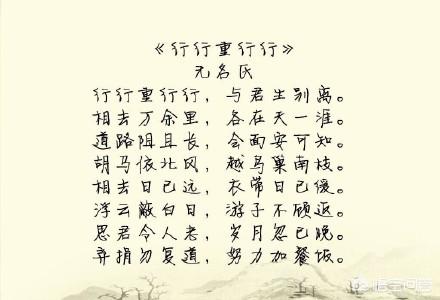 《行行重行行》
无名氏
行行重行行，与君生别离。
相去万余里，各在天一涯。
道路阻且长，会面安可知。
胡马依北风，越鸟巢南枝。
相去日已远，衣带日已缓。
浮云蔽白日，游子不顾返。
思君令人老，岁月忽已晚。
弃捐勿复道，努力加餐饭。
悟空问答